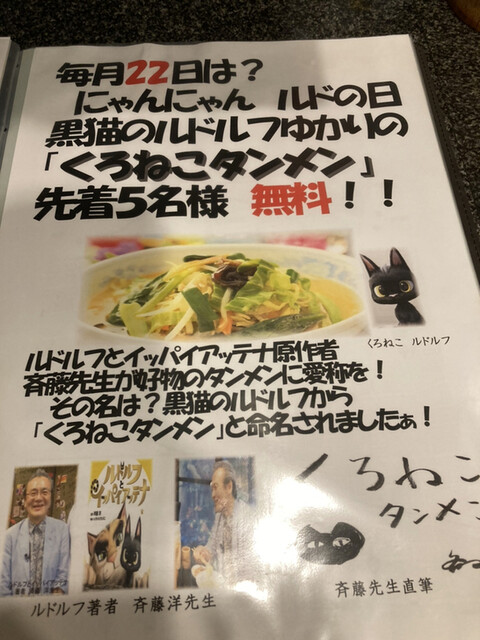 毎月22日は？
にゃんにゃん ルドの日
黒猫のルドルフゆかりの
「くろねこタンメン」
先着5名様 無料！！
くろねこ ルドルフ
ルドルフとイッパイアッテナ原作者
斉藤先生が好物のタンメンに愛称を！
その名は？黒猫のルドルフから
「くろねこタンメン」と命名されましたぁ！
ルドルフ
と
イッパイアッテナ
くろねこ
タンメン
ルドルフとイッパイアッテナ
ルドルフ著者 斉藤洋先生
斉藤先生直筆